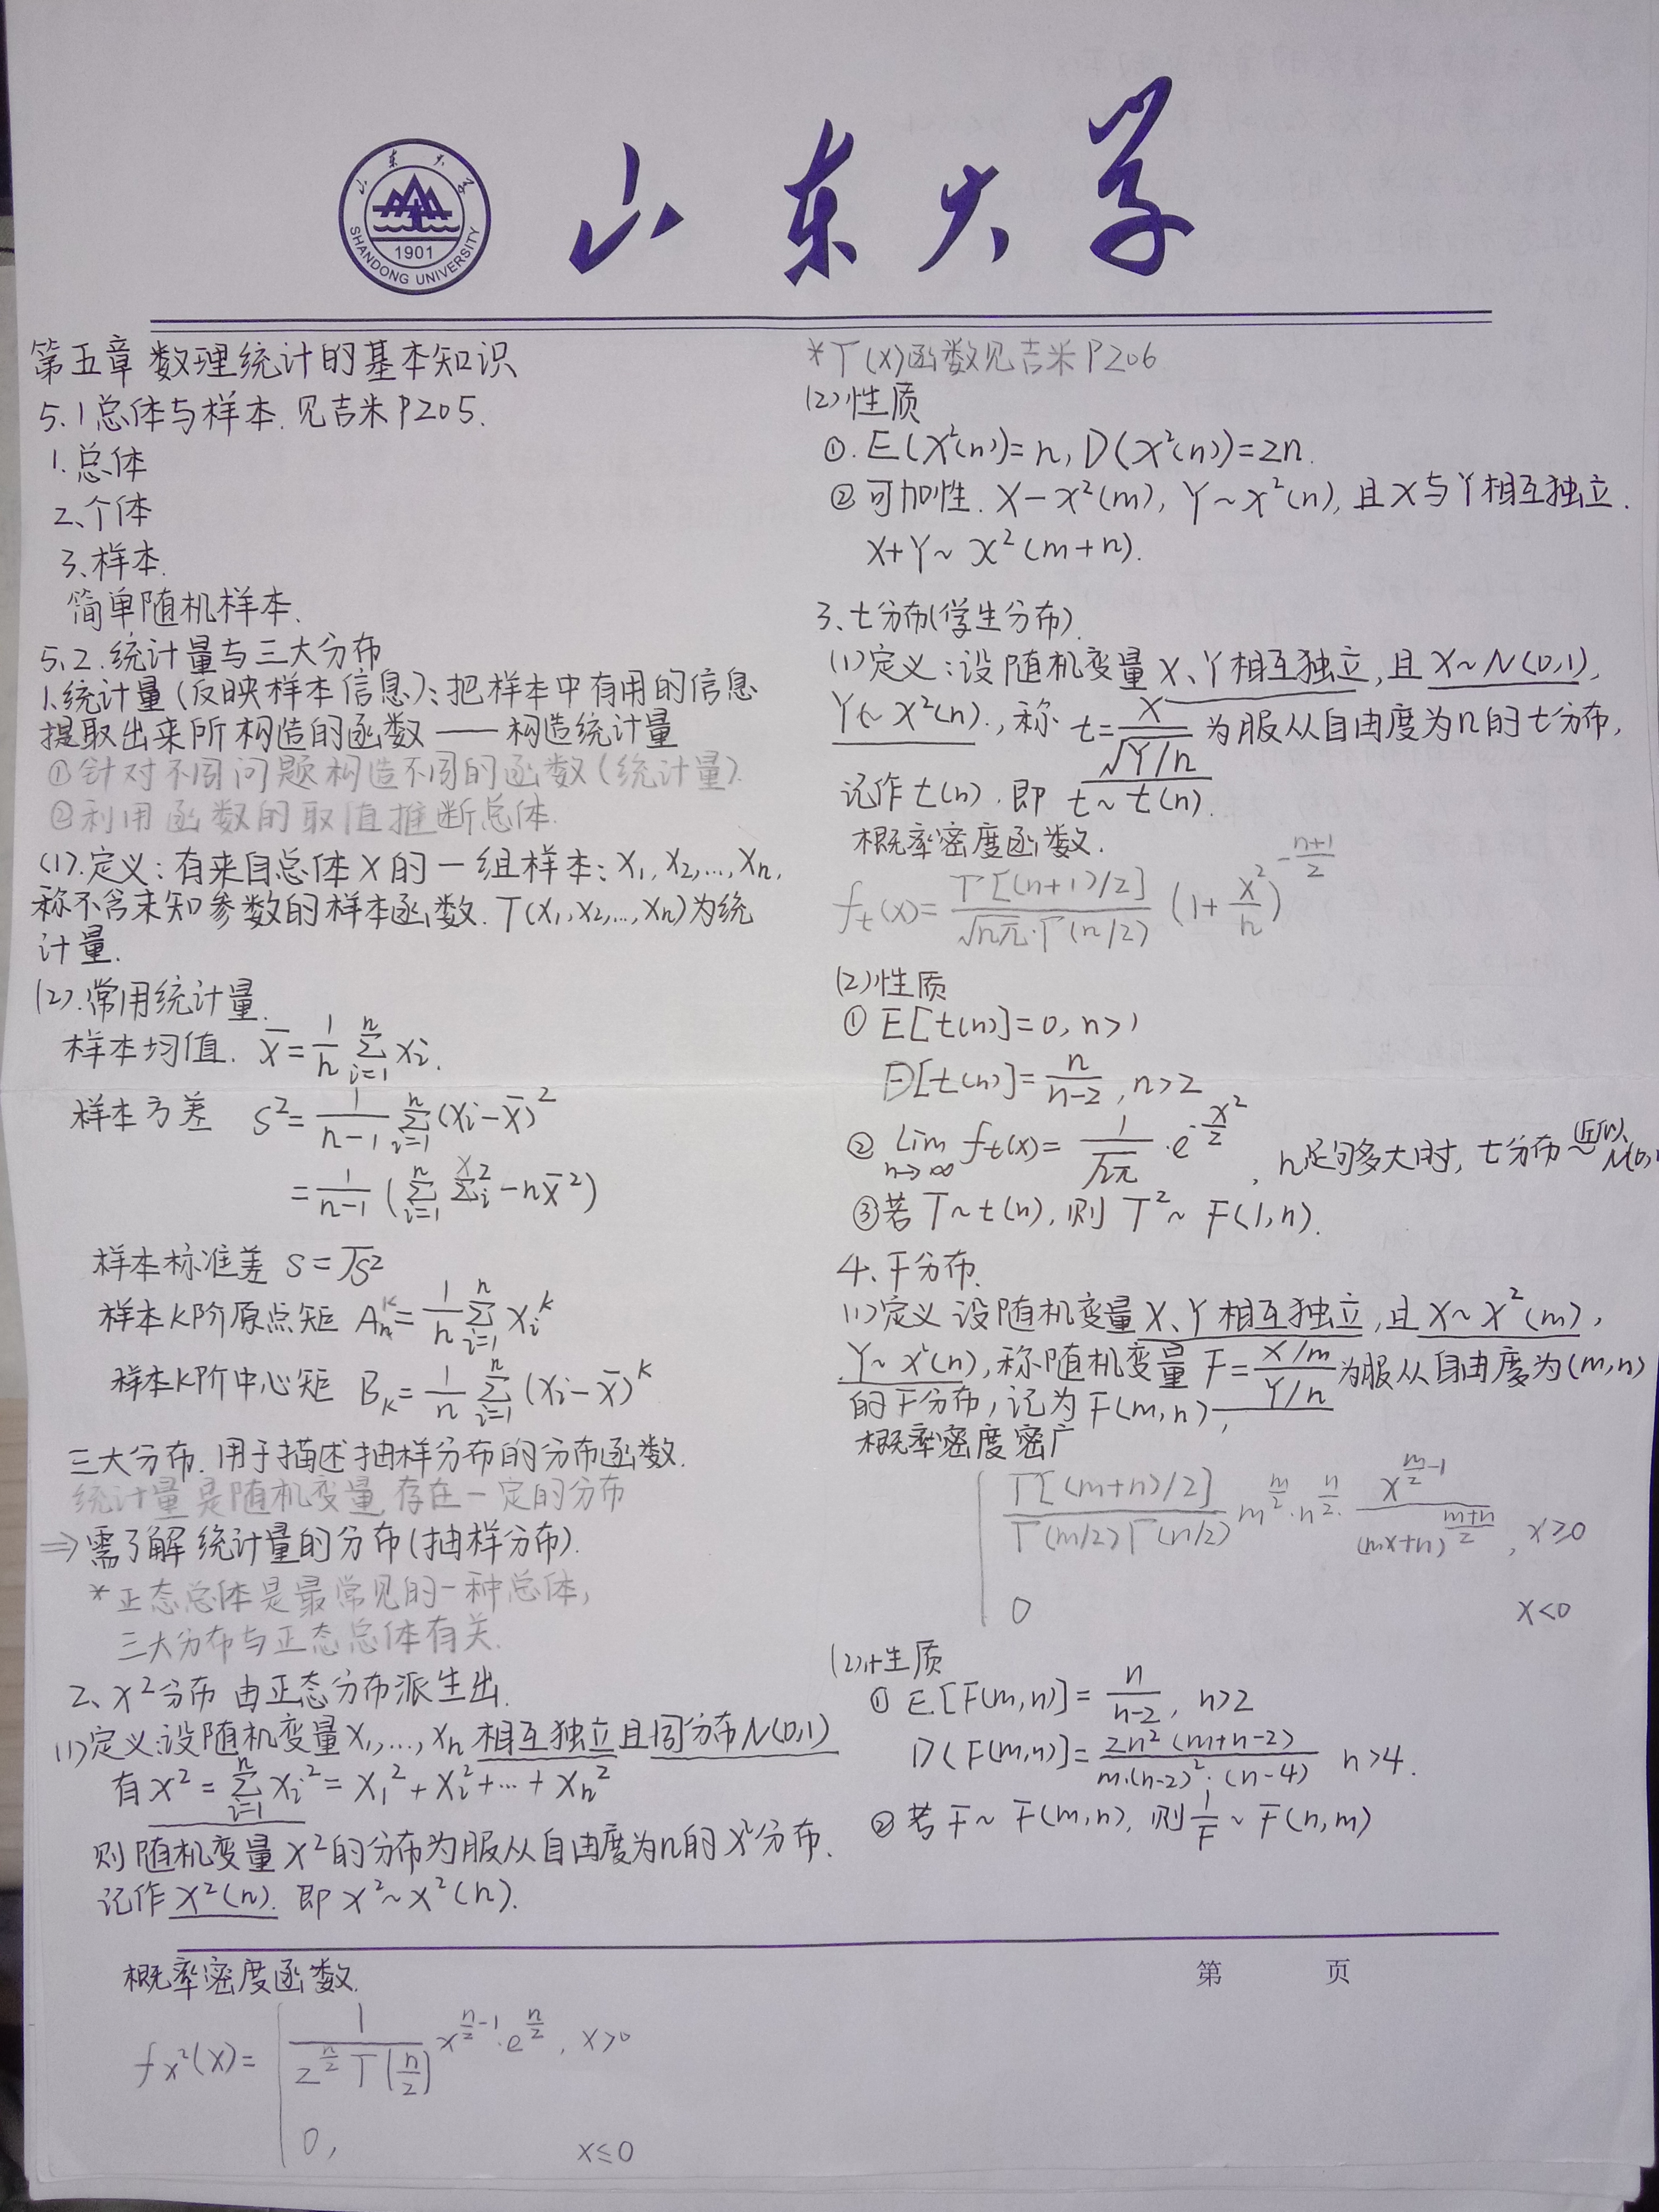 山东大学
山东大学
1901
SHANDONG UNIVERSITY
第五章 数理统计的基本知识
5.1 总体与样本. 见吉米P205.
1.总体
2、个体
3、样本.
简单随机样本.
5.2.统计量与三大分布
1.统计量(反映样本信息):把样本中有用的信息
提取出来所构造的函数——构造统计量
①针对不同问题构造不同的函数(统计量).
②利用函数的取值推断总体.
(1).定义:有来自总体X的一组样本:X₁,X₂,…,Xₙ,
称不含未知参数的样本函数.T(X₁,X₂,…,Xₙ)为统
计量.
(2).常用统计量.
样本均值. X̄=1/n Σ(i=1→n) Xi.
样本方差 S²=1/(n-1) Σ(i=1→n) (Xi-X̄)²
=1/(n-1) (Σ(i=1→n) Xi²-nX̄²)
样本标准差 S=√S²
样本K阶原点矩 =1/n Σ(i=1→n) Xi^K
样本K阶中心矩 B_K=1/n Σ(i=1→n) (Xi-X̄)^K
三大分布.用于描述抽样分布的分布函数.
统计量是随机变量,存在一定的分布
⇒需了解统计量的分布(抽样分布).
*正态总体是最常见的一种总体,
三大分布与正态总体有关.
2、X²分布 由正态分布派生出.
(1)定义:设随机变量X₁,…,Xₙ相互独立且同分布N(0,1)
有X²=Σ(i=1→n) Xi²=X₁²+Xi²+…+Xₙ²
则随机变量X²的分布为服从自由度为n的X²分布.
记作X²(n). 即X²~X²(n).
概率密度函数.
f_X²(x)= { 1/(2^(n/2) Γ(n/2)) x^(n/2-1)·e^(n/2), x>0
0, x≤0
*Γ(x)函数见吉米P206
(2)性质
①.E(X²(n))=n, D(X²(n))=2n.
②可加性. X-X²(m), Y~X²(n), 且X与Y相互独立.
X+Y~X²(m+n).
3、t分布(学生分布).
(1)定义:设随机变量X、Y相互独立,且X~N(0,1),
Y~X²(n).,称 t=X/√(Y/n) 为服从自由度为n的t分布,
记作t(n).即 t~t(n).
概率密度函数.
f_t(x)=Γ[(n+1)/2]/(√nπ·Γ(n/2)) (1+x²/n)^(-(n+1)/2)
(2)性质
①E[t(n)]=0, n>1
D[t(n)]=n/(n-2), n>2
②lim(n→∞) f_t(x)=1/√2π·e^(-x²/2), n足够多大时, t分布 近似~ N(0,
③若T~t(n), 则T²~F(1,n).
4、F分布.
(1)定义 设随机变量X、Y相互独立,且X~X²(m),
Y~X²(n), 称随机变量 F=(X/m)/(Y/n) 为服从自由度为(m,n)
的F分布,记为F(m,n),
概率密度密广
{ Γ[(m+n)/2]/(Γ(m/2)Γ(n/2)) m^(m/2)·n^(n/2)·x^(m/2-1)/(mx+n)^((m+n)/2), x≥0
0 x<0
(2)性质
①E[F(m,n)]=n/(n-2), n>2
D(F(m,n)]=2n²(m+n-2)/(m·(n-2)²·(n-4)) n>4.
②若F~F(m,n), 则1/F~F(n,m)
第 页